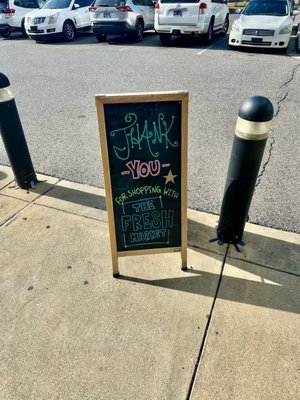 THANK
-YOU-
FOR SHOPPING WITH
THE
FRESH
MARKET